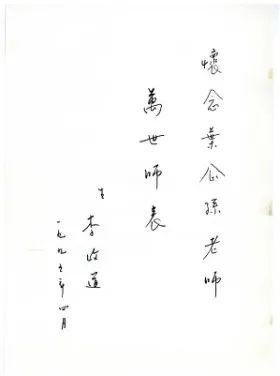 懷念葉企孫老師
萬世師表
生
李政道
一九九三年四月